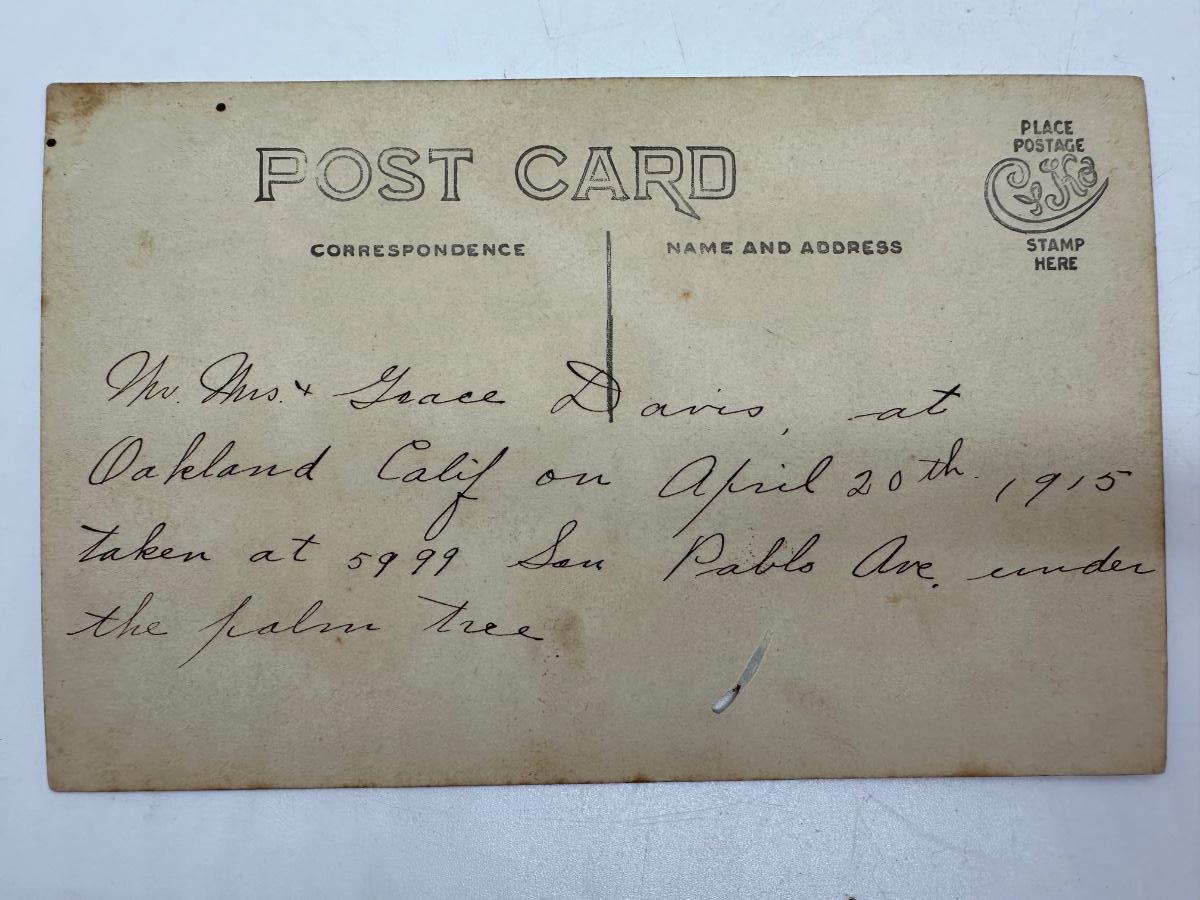 POST CARD
CORRESPONDENCE
NAME AND ADDRESS
PLACE
POSTAGE
Cyko
STAMP
HERE
Mr. Mrs. + Grace Davis, at
Oakland Calif on April 20th. 1915
taken at 5999 San Pablo Ave. under
the palm tree